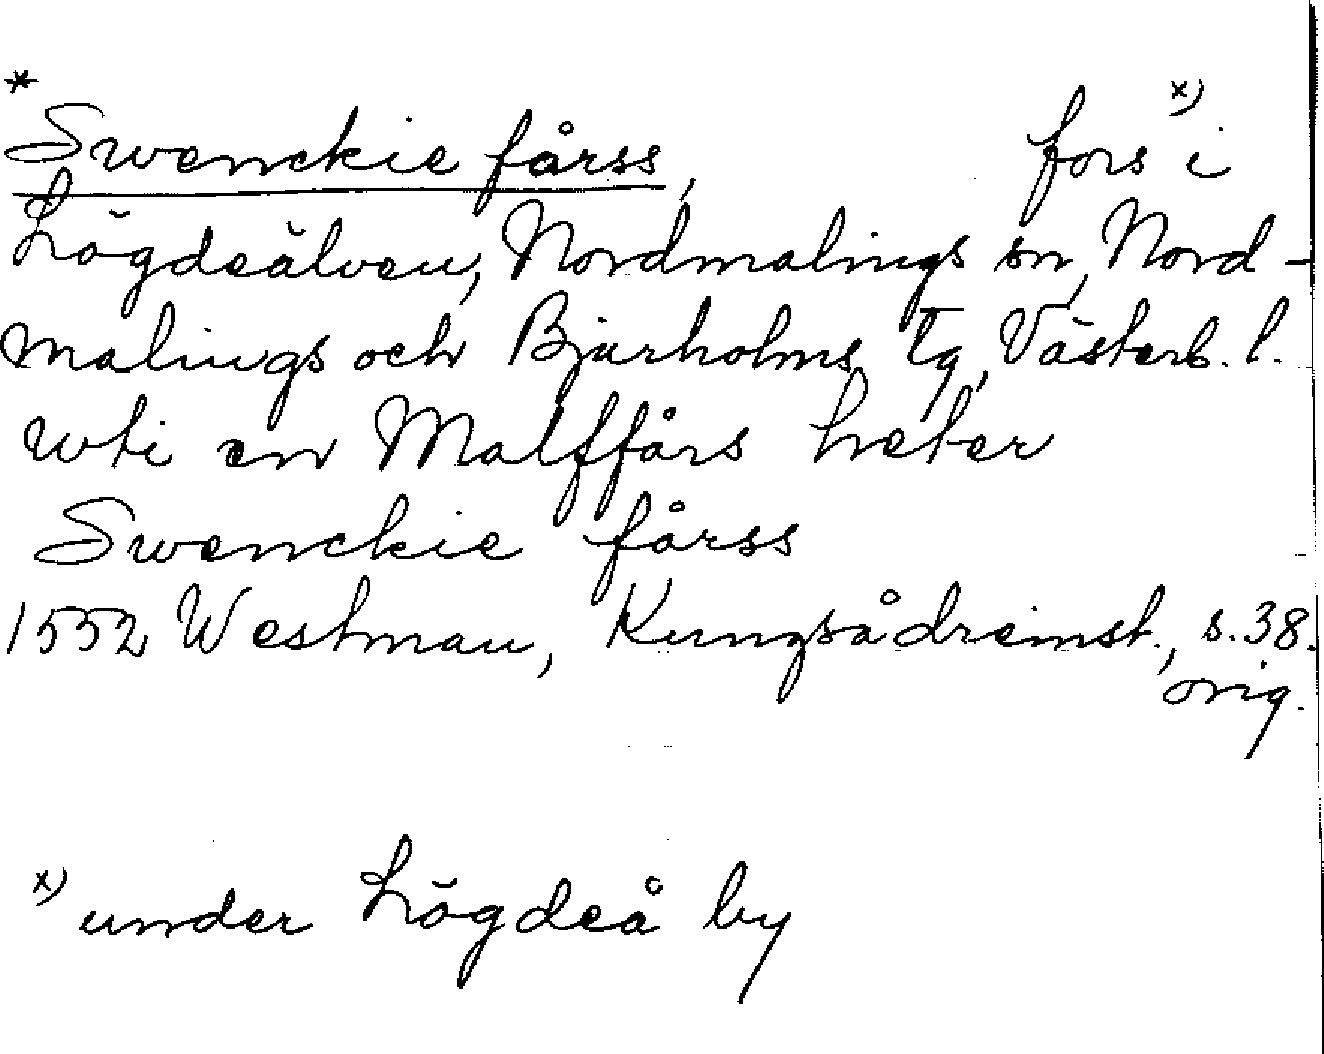 *
Swenckie fårss, fors x) i
Lögdeälven, Nordmalings sn, Nord-
malings och Bjurholms tg, Västerb. l.
wti en Malffårs heter
Swenckie fårss
1552 Westman, Kungsådreinst., s. 38.
orig.
x) under Lögdeå by